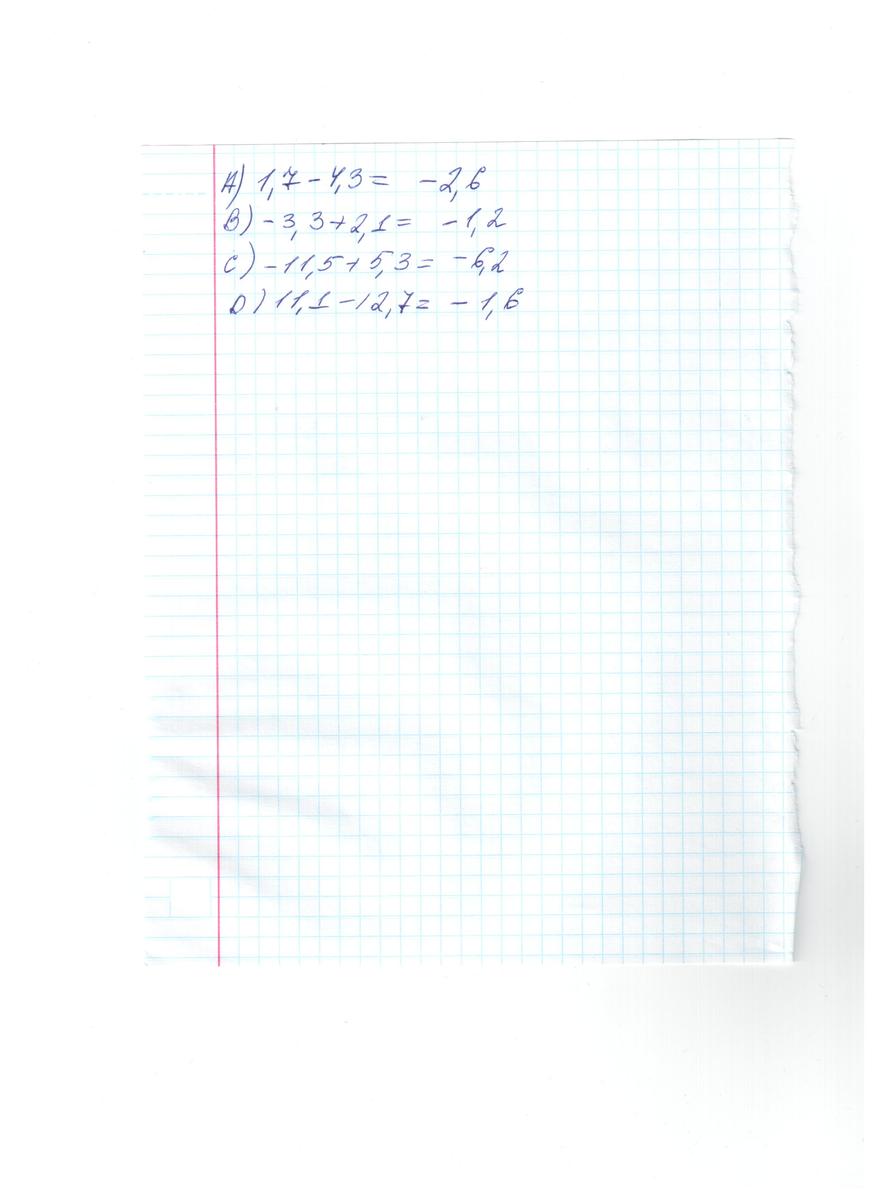 A) 1,7 - 4,3 = -2,6
B) -3,3 + 2,1 = -1,2
C) -11,5 + 5,3 = -6,2
D) 11,1 - 12,7 = -1,6